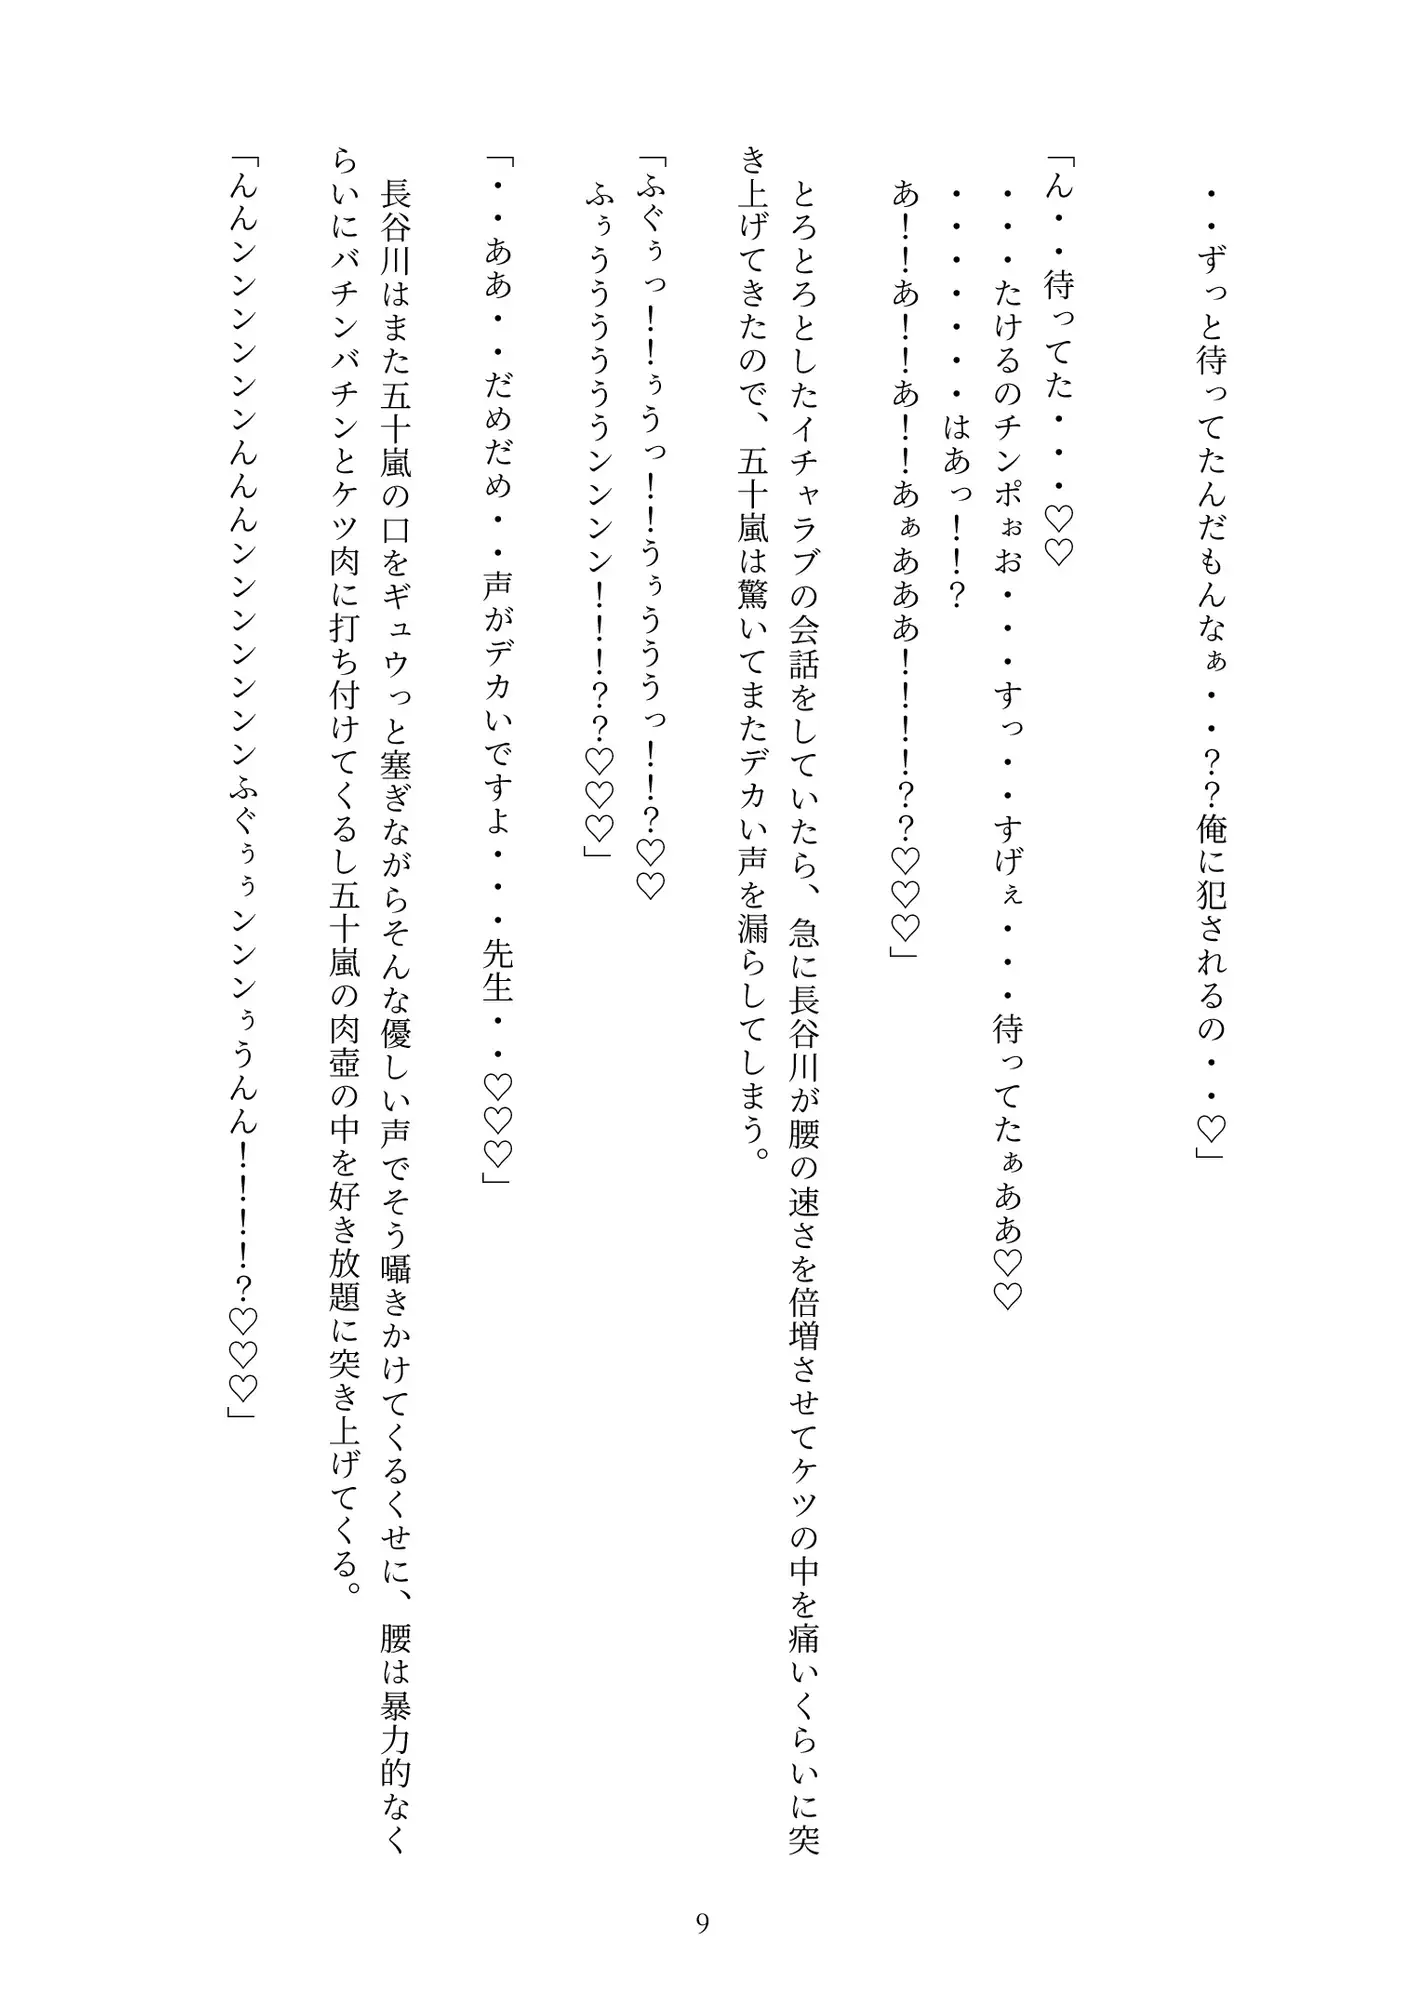 ・・ずっと待ってたんだもんなぁ・・？？俺に犯されるの・・♡」
「ん・・待ってた・・・♡♡
・・・たけるのチンポぉお・・・すっ・・すげぇ・・・待ってたぁああ♡♡
・・・・・・・はあっ！！？
あ！！あ！！あ！！あぁあああ！！！！？？♡♡♡」
とろとろとしたイチャラブの会話をしていたら、急に長谷川が腰の速さを倍増させてケツの中を痛いくらいに突
き上げてきたので、五十嵐は驚いてまたデカい声を漏らしてしまう。
「ふぐぅっ！！ぅうっ！！うぅううっ！！？♡♡
ふぅうううううンンンン！！！？？♡♡♡」
「・・ああ・・だめだめ・・声がデカいですよ・・・先生・・♡♡♡」
長谷川はまた五十嵐の口をギュウっと塞ぎながらそんな優しい声でそう囁きかけてくるくせに、腰は暴力的なく
らいにバチンバチンとケツ肉に打ち付けてくるし五十嵐の肉壺の中を好き放題に突き上げてくる。
「んんンンンンンンんんんンンンンンンンふぐぅぅンンンぅうんん！！！！？♡♡♡」
9